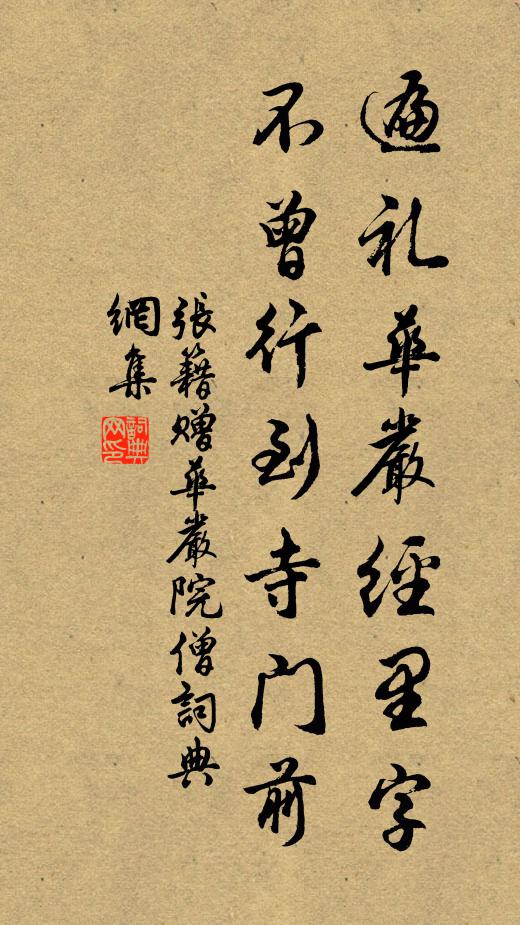 遍礼華嚴經里字
不曾行到寺门前
張籍贈華嚴院僧詞典
網集
詞典
网印